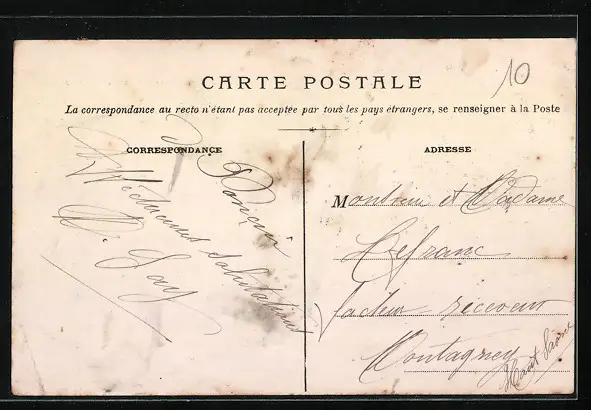 10
CARTE POSTALE
La correspondance au recto n'étant pas acceptée par tous les pays étrangers, se renseigner à la Poste
CORRESPONDANCE
Affectueuses Salutations
ADRESSE
Monsieur et Madame
Lefranc
facteur receveur
Montagney
Haute Saône